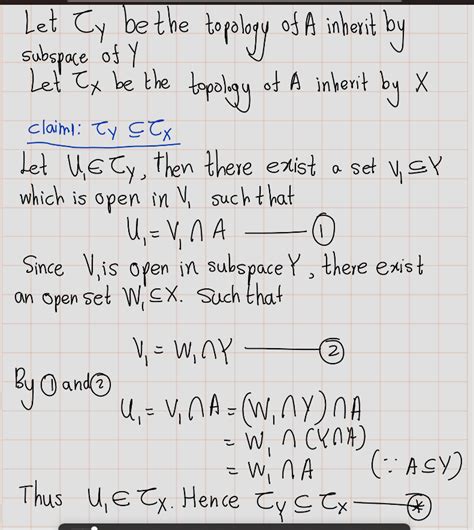 Let τ_Y be the topology of A inherit by
subspace of Y
Let τ_X be the topology of A inherit by X
claim1: τ_Y ⊆ τ_X
Let U₁ ∈ τ_Y, then there exist a set V₁ ⊆ Y
which is open in V₁ such that
U₁ = V₁ ∩ A —— ①
Since V₁ is open in subspace Y, there exist
an open set W₁ ⊆ X. Such that
V₁ = W₁ ∩ Y —— ②
By ① and ②
U₁ = V₁ ∩ A = (W₁ ∩ Y) ∩ A
= W₁ ∩ (Y ∩ A)
= W₁ ∩ A (∵ A ⊆ Y)
Thus U₁ ∈ τ_X. Hence τ_Y ⊆ τ_X —— ⊛